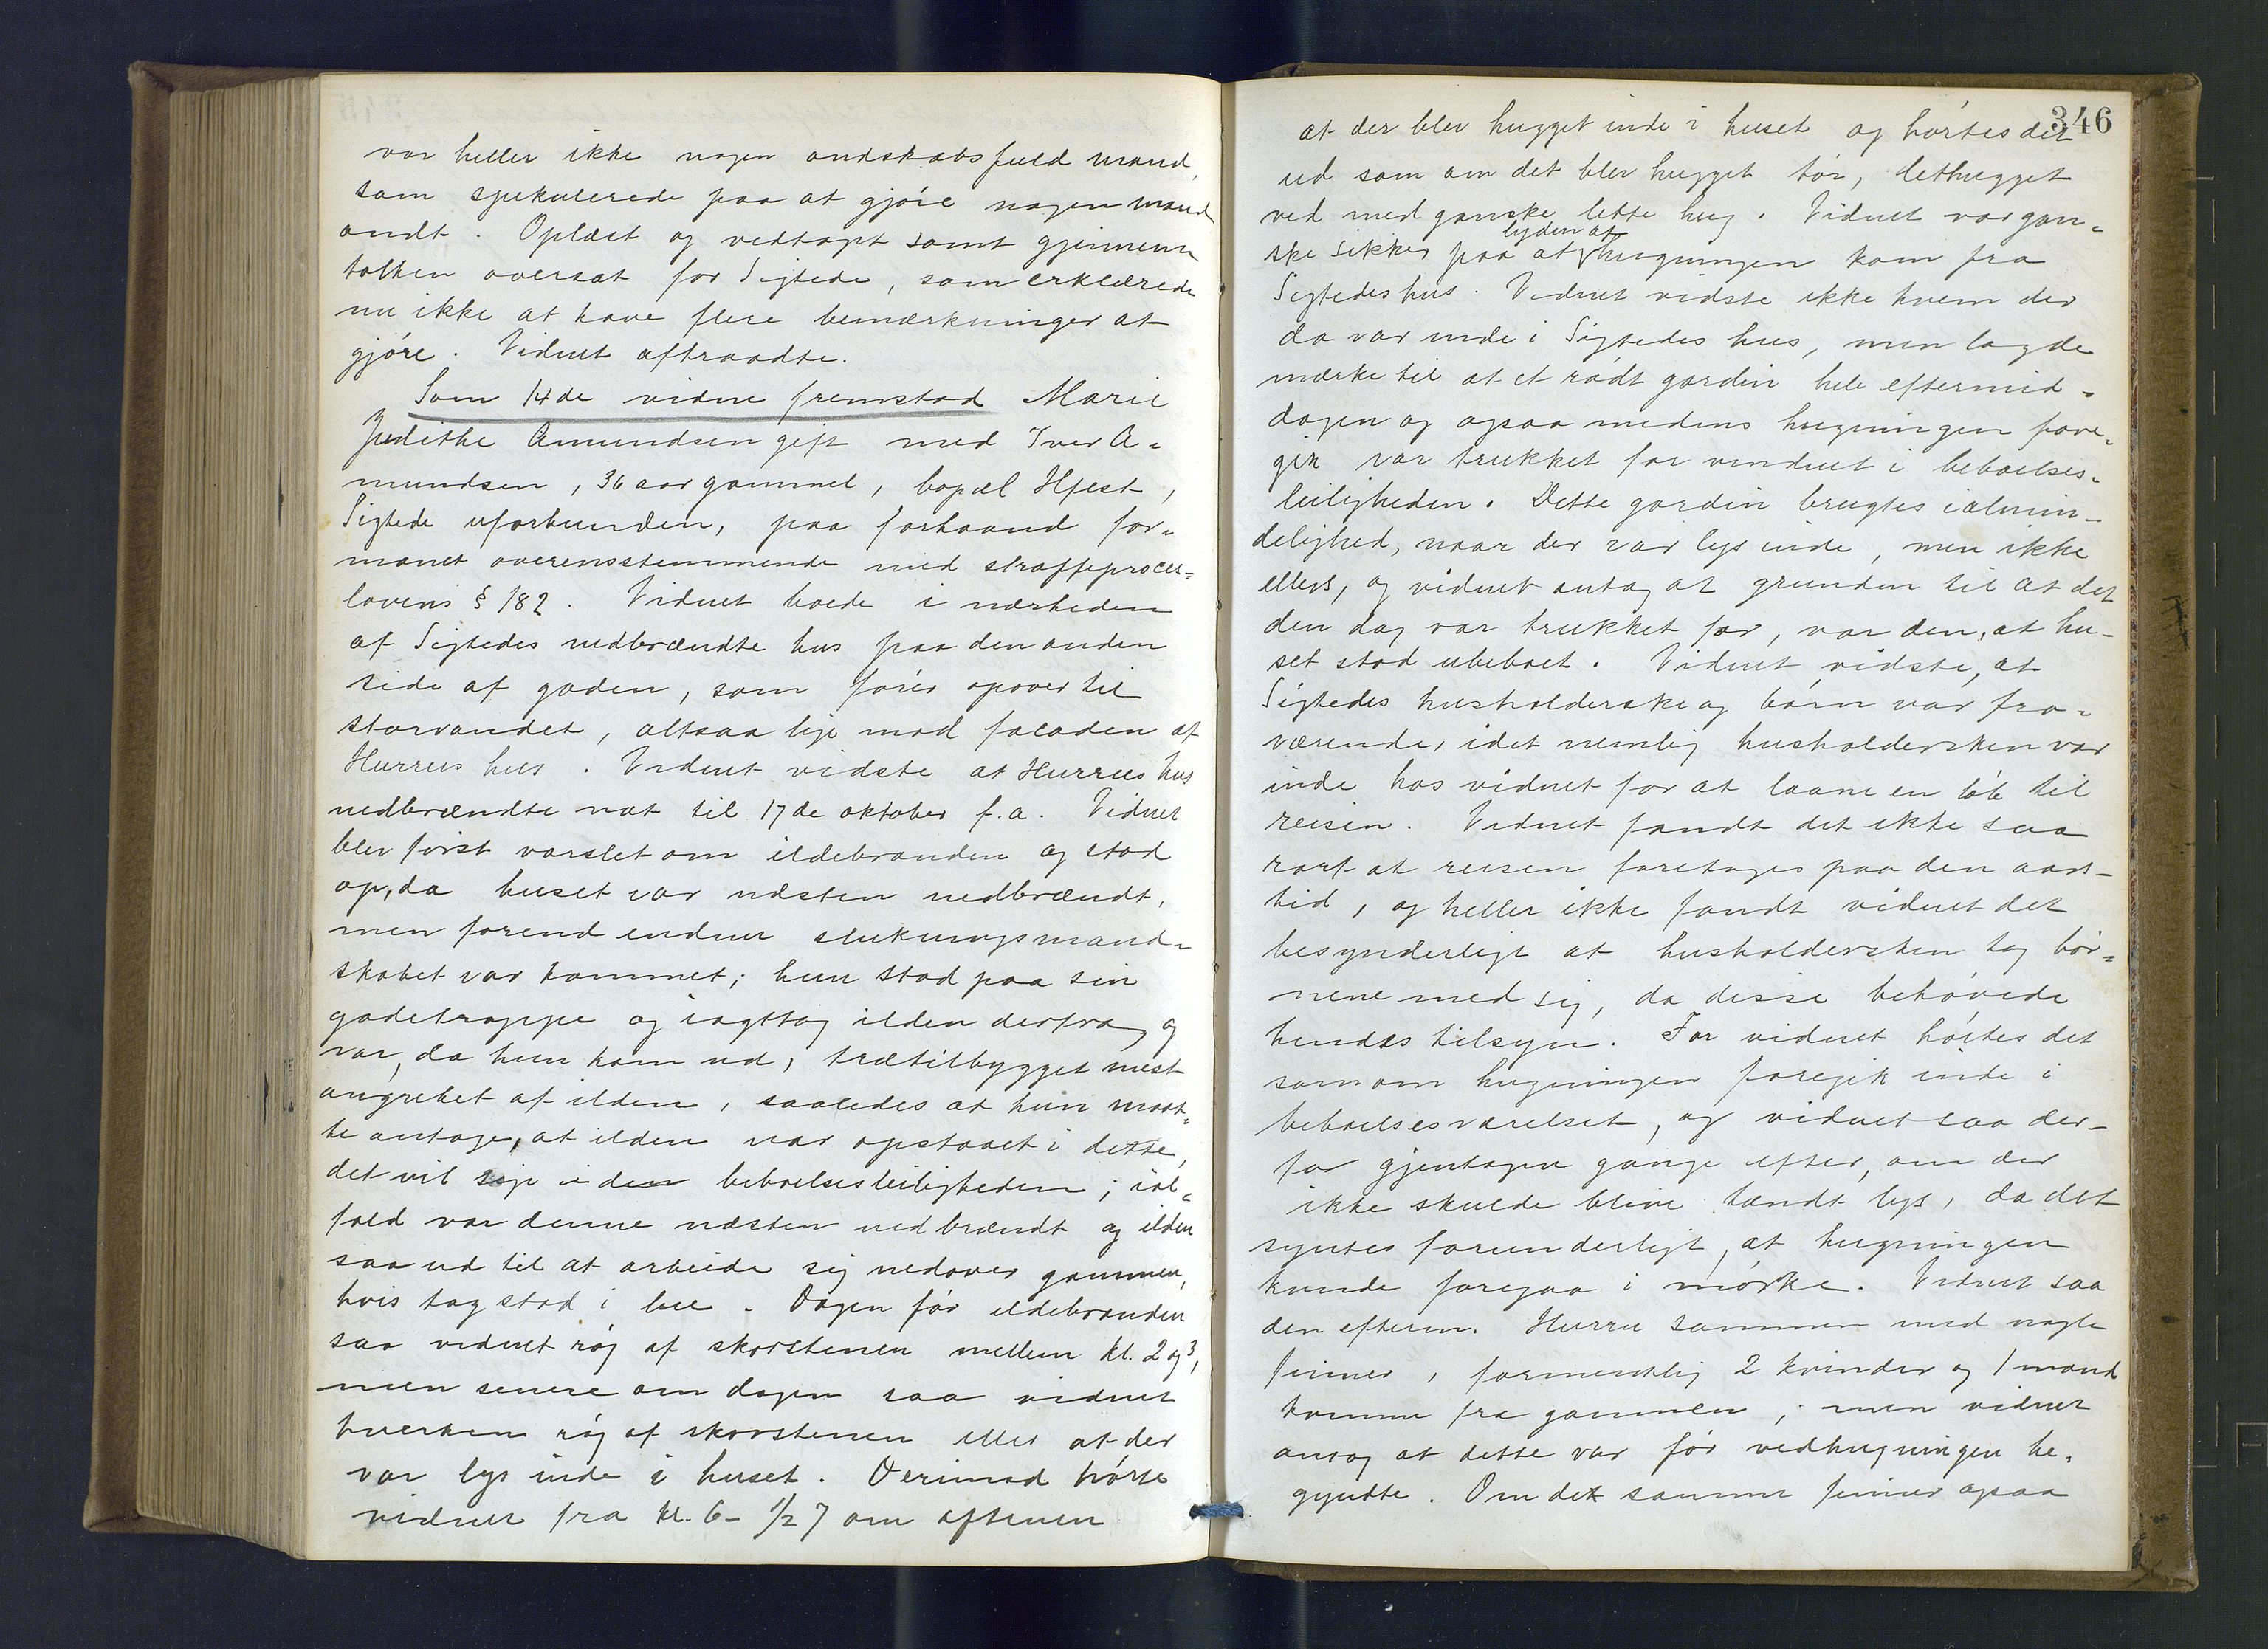 var heller ikke nogen ondskabsfuld mand,
som spekulerede paa at gjøre nogen mand
ondt. Oplæst og vedtaget samt gjennem
tolken oversat for Sigtede, som erklærede
nu ikke at have flere bemærkninger at
gjøre. Vidnet aftraadte.
Som 14de vidne fremstod Marie
Judithe Amundsen gift med Iver A-
mundsen, 36 aar gammel, bopæl Hfest,
Sigtede uforbunden, paa forhaand for-
manet overensstemmende med straffeproces-
lovens § 182. Vidnet boede i nærheden
af Sigtedes nedbrændte hus paa den anden
side af gaden, som fører opover til
storvandet, altsaa lige mod facaden af
Hurrus hus. Vidnet vidste at Hurrus hus
nedbrændte nat til 17de oktober f.a. Vidnet
blev først varslet om ildebranden og stod
op, da huset var næsten nedbrændt,
men forend endnu slukningsmand-
skabet var kommet; hun stod paa sin
gadetrappe og iagttog ilden derfra og
var, da hun kom ud, trætilbygget mest
angrebet af ilden, saaledes at hun maat-
te antage, at ilden var opstaaet i dette,
det vil sige i den beboelsesleiligheden; ial-
fald var denne næsten nedbrændt og ilden
saa ud til at arbeide sig nedover gammen,
hvis tag stod i lue. Dagen før ildebranden
saa vidnet røg af skorstenen mellem kl. 2 og 3,
men senere om dagen saa vidnet
hverken røg af skorstenen eller at der
var lys inde i huset. Derimod hørte
vidnet fra kl. 6- 1/2 7 om aftenen
346
at der blev hugget inde i huset og hørtes det
ud som om det blev hugget tør, lethugget
ved med ganske lette hug. Vidnet var gan-
lyden af
ske sikker paa at hugningen kom fra
Sigtedes hus. Vidnet vidste ikke hvem der
da var inde i Sigtedes hus, men lagde
mærke til at et rødt gardin hele eftermid-
dagen og ogsaa medens hugningen fore-
gik var trukket for vinduet i beboelses-
leiligheden. Dette gardin brugtes ialmin-
delighed, naar der var lys inde, men ikke
ellers, og vidnet antog at grunden til at det
den dag var trukket for, var den, at hu-
set stod ubeboet. Vidnet vidste, at
Sigtedes husholderske og børn var fra-
værende, idet nemlig husholdersken var
inde hos vidnet for at laane en til
reisen. Vidnet fandt det ikke saa
rart at reisen foretages paa den aars-
tid, og heller ikke fandt vidnet det
besynderligt at husholdersken tog bør-
nene med sig, da disse behøvede
hendes tilsyn. For vidnet hørtes det
som om hugningen foregik inde i
beboelsesværelset, og vidnet saa der-
for gjentagne gange efter, om der
ikke skulde blive tændt lys, da det
syntes forunderligt, at hugningen
kunde foregaa i mørke. Vidnet saa
den efterm. Hurru sammen med nogle
finner, formentlig 2 kvinder og 1 mand
komme fra gammen, men vidnet
ansog at dette var før vedhugningen be-
gyndte. Om det samme finner ogsaa